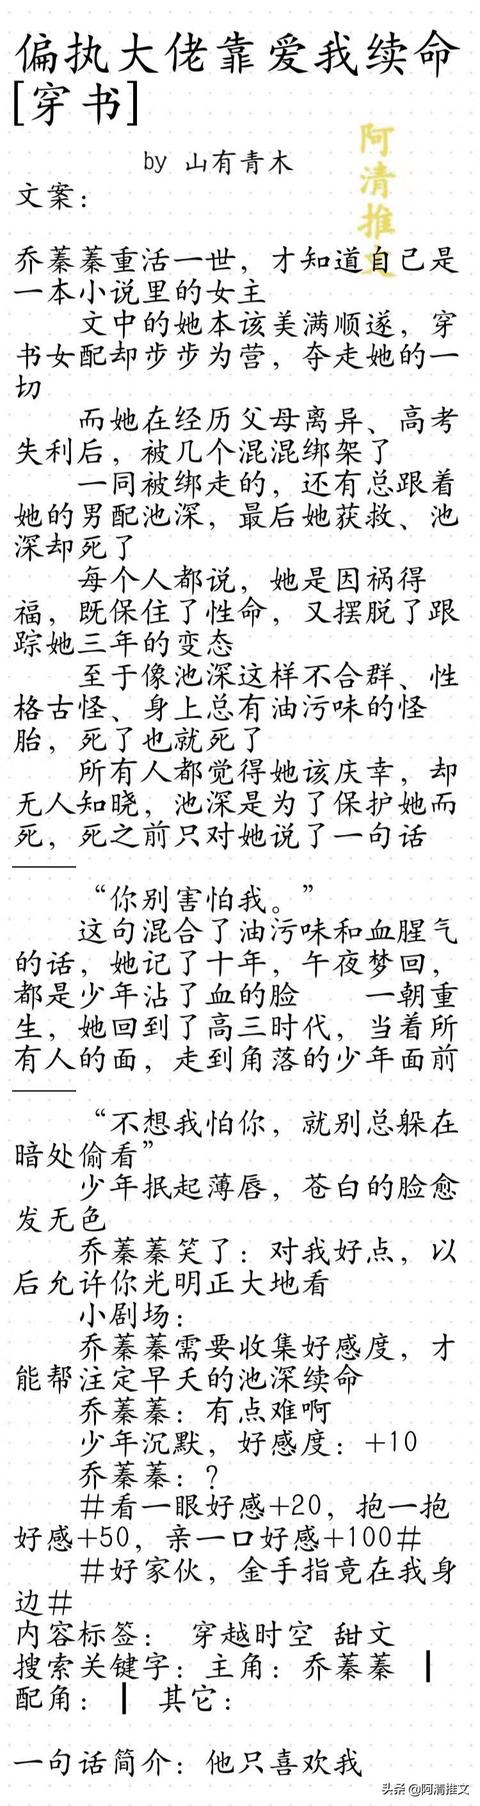 偏执大佬靠爱我续命
[穿书]
阿清推文
by 山有青木
文案：
乔蓁蓁重活一世，才知道自己是
一本小说里的女主
文中的她本该美满顺遂，穿
书女配却步步为营，夺走她的一
切
而她在经历父母离异、高考
失利后，被几个混混绑架了
一同被绑走的，还有总跟着
她的男配池深，最后她获救、池
深却死了
每个人都说，她是因祸得
福，既保住了性命，又摆脱了跟
踪她三年的变态
至于像池深这样不合群、性
格古怪、身上总有油污味的怪
胎，死了也就死了
所有人都觉得她该庆幸，却
无人知晓，池深是为了保护她而
死，死之前只对她说了一句话
——
“你别害怕我。”
这句混合了油污味和血腥气
的话，她记了十年，午夜梦回，
都是少年沾了血的脸 一朝重
生，她回到了高三时代，当着所
有人的面，走到角落的少年面前
——
“不想我怕你，就别总躲在
暗处偷看”
少年抿起薄唇，苍白的脸愈
发无色
乔蓁蓁笑了：对我好点，以
后允许你光明正大地看
小剧场：
乔蓁蓁需要收集好感度，才
能帮注定早夭的池深续命
乔蓁蓁：有点难啊
少年沉默，好感度：+10
乔蓁蓁：？
#看一眼好感+20，抱一抱
好感+50，亲一口好感+100#
#好家伙，金手指竟在我身
边#
内容标签： 穿越时空 甜文
搜索关键字：主角：乔蓁蓁 ┃
配角：┃ 其它：
一句话简介：他只喜欢我
头条 @阿清推文